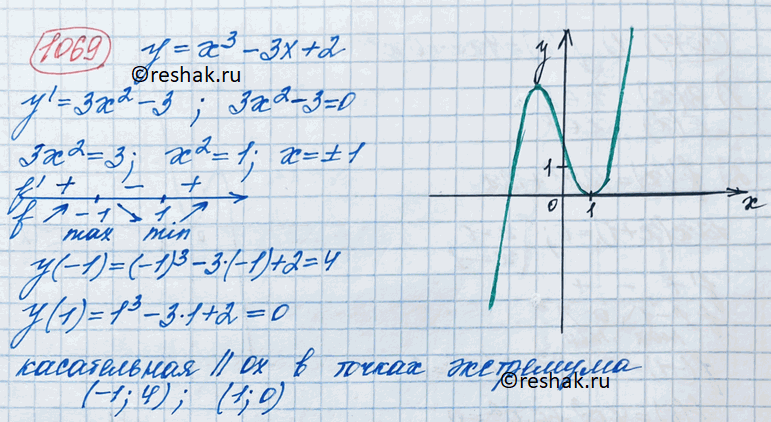 1069 y = x³ - 3x + 2
©reshak.ru
y' = 3x² - 3 ; 3x² - 3 = 0
3x² = 3; x² = 1; x = ± 1
f' + - +
f ↗ -1 ↘ 1 ↗
max min
y(-1) = (-1)³ - 3·(-1) + 2 = 4
y(1) = 1³ - 3·1 + 2 = 0
касательная // ox в точках экстремума
(-1; 4) ; (1; 0)
©reshak.ru
y
1
0 1 x